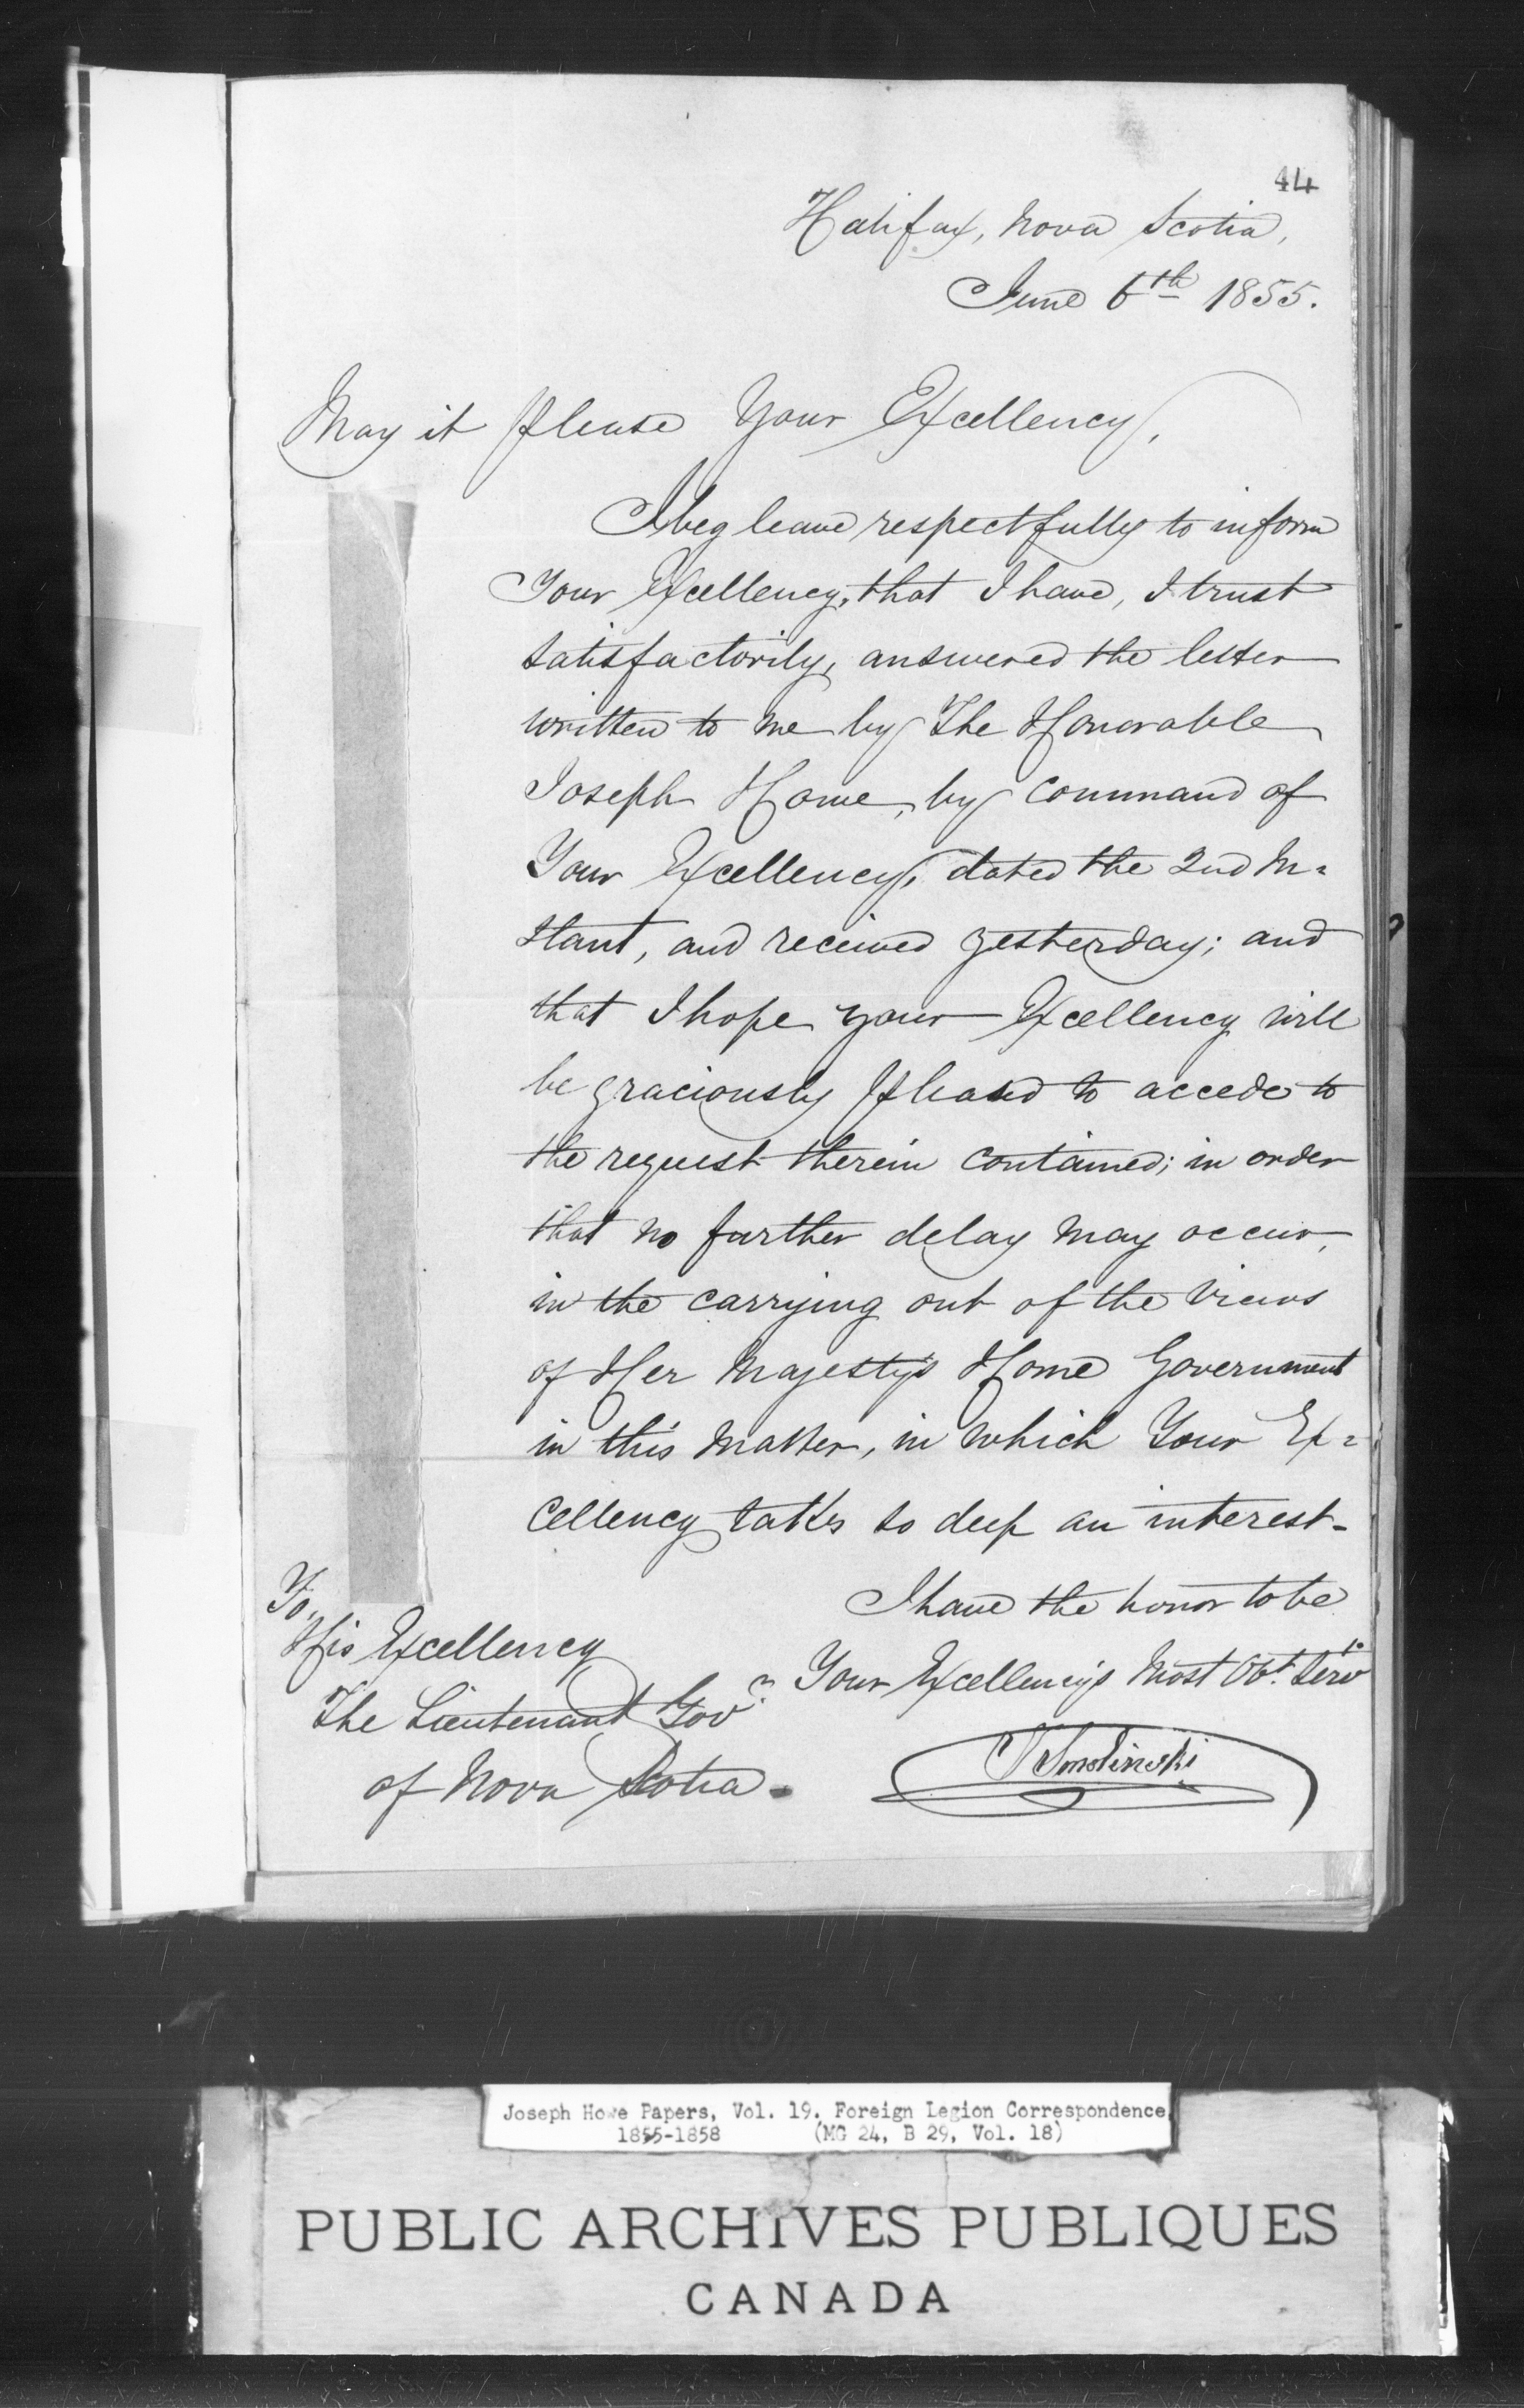 44
Halifax, Nova Scotia,
June 6th 1855.
May it Please Your Excellency,
I beg leave respectfully to inform
Your Excellency, that I have, I trust
satisfactorily, answered the letter
written to me by The Honorable
Joseph Howe, by command of
Your Excellency, dated the 2nd In=
stant, and received yesterday; and
that I hope your Excellency will
be graciously pleased to accede to
the request therein contained; in order
that no further delay may occur,
in the carrying out of the views
of Her Majesty's Home Government
in this matter, in which Your Ex=
cellency takes so deep an interest-
I have the honor to be
Your Excellency's Most Obt. Servt.
Smolinski
To,
His Excellency
The Lieutenant Govr.
of Nova Scotia.
Joseph Howe Papers, Vol. 19. Foreign Legion Correspondence
1855-1858 (MG 24, B 29, Vol. 18)
PUBLIC ARCHIVES PUBLIQUES
CANADA